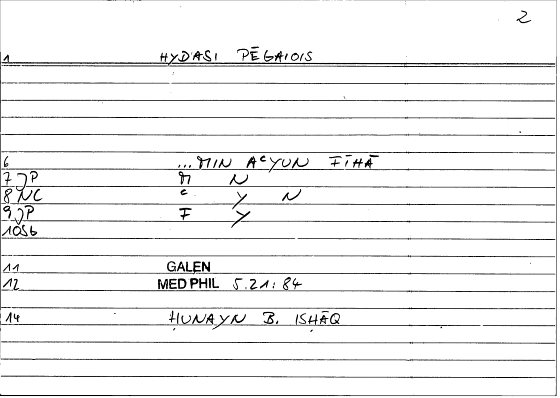 2
1 HYDASI PĒGAIOIS
6 ...MIN AᶜYUN FĪHĀ
7 JP M N
8 NC ᶜ Y N
9 JP F Y
10 SB
11 GALEN
12 MED PHIL 5.21: 84
14 ḤUNAYN B. ISḤĀQ